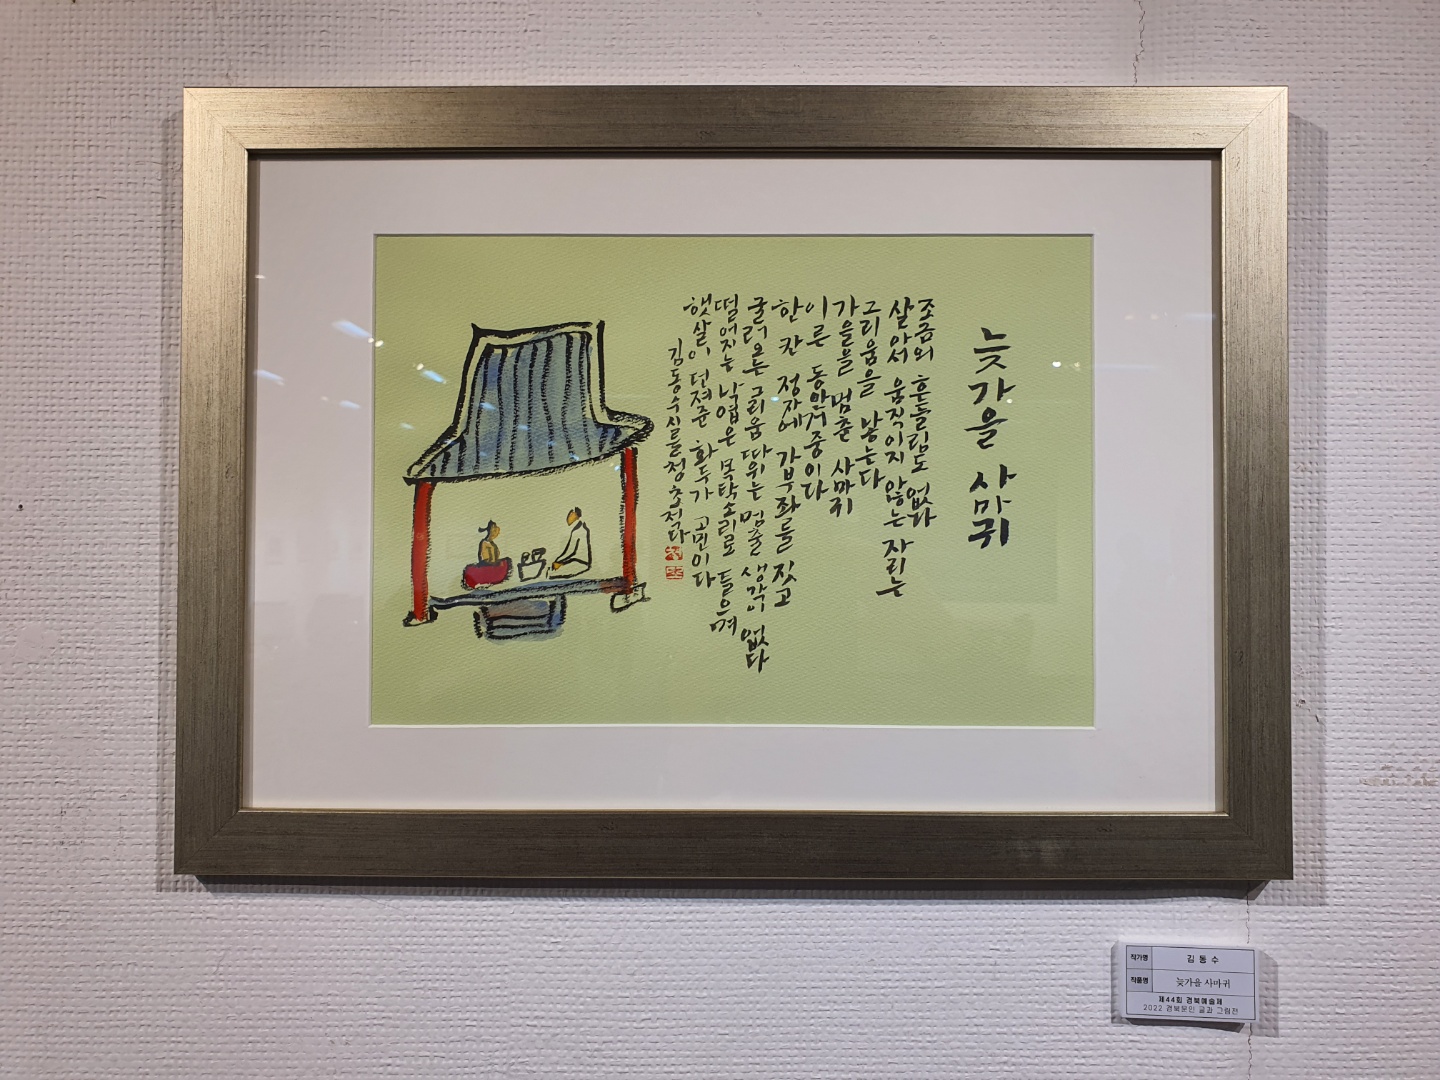 늦가을 사마귀
조금의 흔들림도 없다
살아서 움직이지 않는 자리는
그리움을 낳는다
가을을 멈춘 사마귀
이른 동안거중이다
한 칸 정자에 가부좌를 짓고
굴러오는 그리움 따위는 멈출 생각이 없다
떨어지는 낙엽은 목탁소리로 들으며
햇살이 던져준 화두가 고민이다
김동수시를 청초적다
작가명 김동수
작품명 늦가을 사마귀
제44회 경북예술제
2022 경북문인 글과 그림전